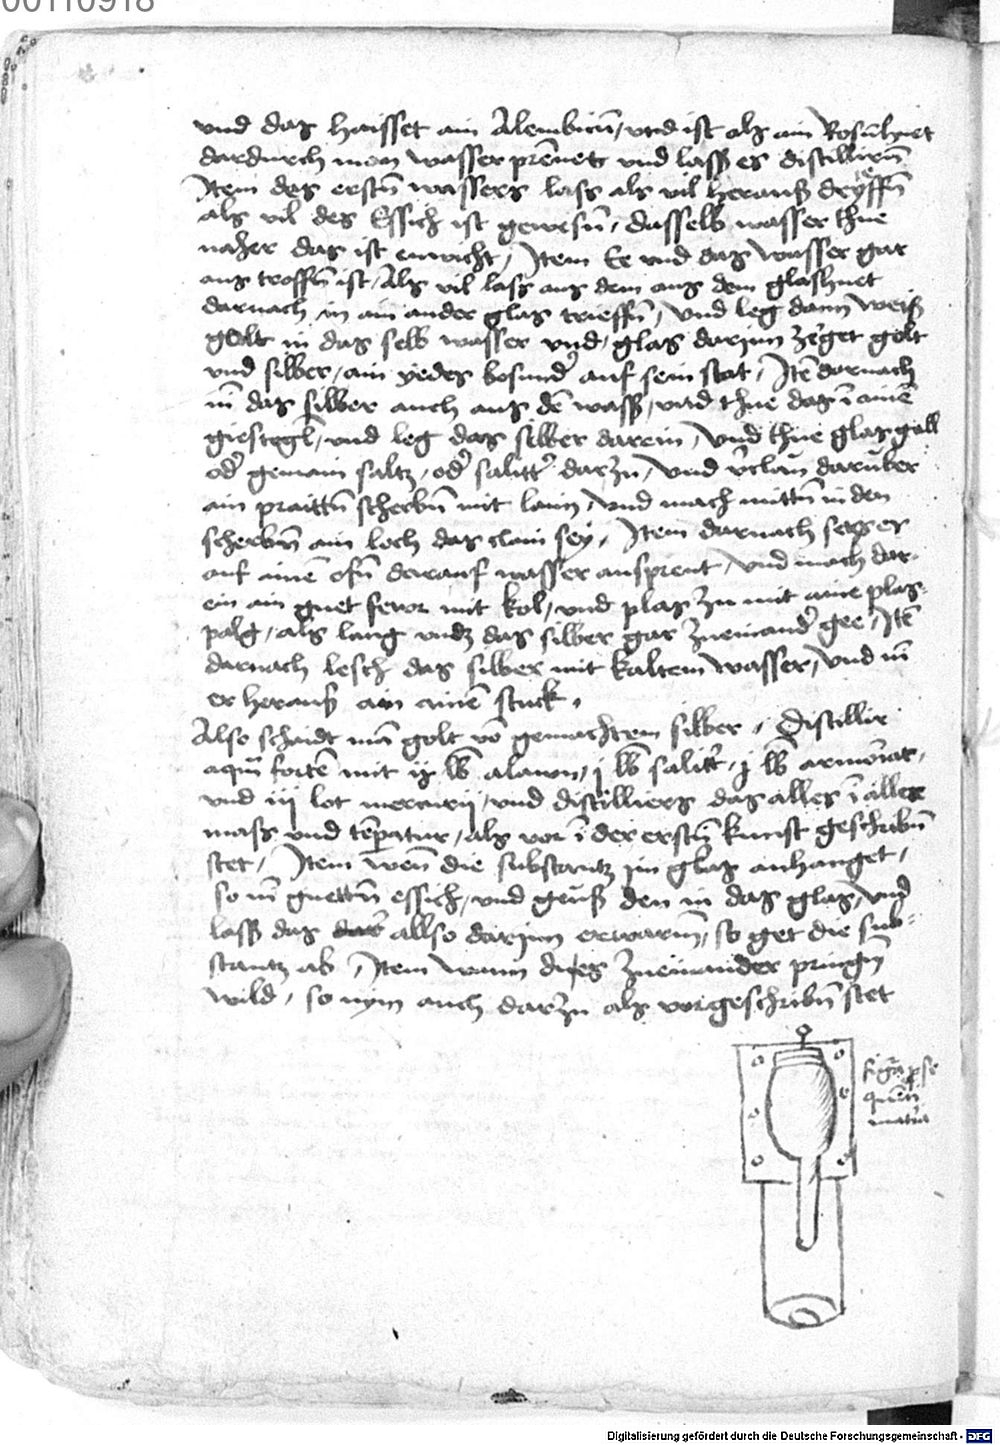 00110918
und das haisset ain Alembicū / und ist als ain Rosūhuet
dardurch man wasser prēnet und lasß es distillirn̄
Item des erstn̄ wassers lass als vil herauß dryͤffn̄
als vil des Essich ist gewesn̄ / dasselb wasser thue
naher das ist enwicht / Item Ee und das wasser gar
aus troffn̄ ist / Als vil lass aus dem aus dem glashuet
darnach in ain ander glas trieffn̄ / und leg dann weiß
golt in das selb wasser und glas darjnn zerget golt
und silber / ain yedes besunder auf sein stat / Itē darnach
nī das silber auch aus dē wasß / und thue das ī ainē
giestegl / und leg das silber darein / und thue glas gall
oder gemain saltz / oder saliter darzu / und darüber
ain praittn̄ scherbn̄ mit laim / und mach mittn̄ in den
scherbn̄ ain loch das clain sey / Item darnach setz er
auf ainē ofn̄ darauf wasser ausprent / und mach dar-
ein ain guet fewr mit kol / und plas zu mit aine plas-
palg / als lang undz das silber gar zueinander gee / Itē
darnach lesch das silber mit kaltem wasser / und nī
er herauß ain ainē stuck .
Also schaidt mā golt vō gemachtem silber . Distillir
aquā fortē mit ij lb alawn / j lb saliter / j lb armoniac .
und iij lot mercurij / und distilliers das alles ī aller
mass und tēperatur / als vor ī der erstn̄ kunst geschribn̄
stet / Item wen̄ die substantz jm glas anhanget /
so nī guettn̄ essich / und geuß den in das glas / und
lasß das allso darjnn erwarm̄ / so get die sub-
stantz ab / Item wann dises zueinander pringn̄
wild / so nym auch darzu als vorgeschribn̄ stet
figura
Digitalisierung gefördert durch die Deutsche Forschungsgemeinschaft - DFG